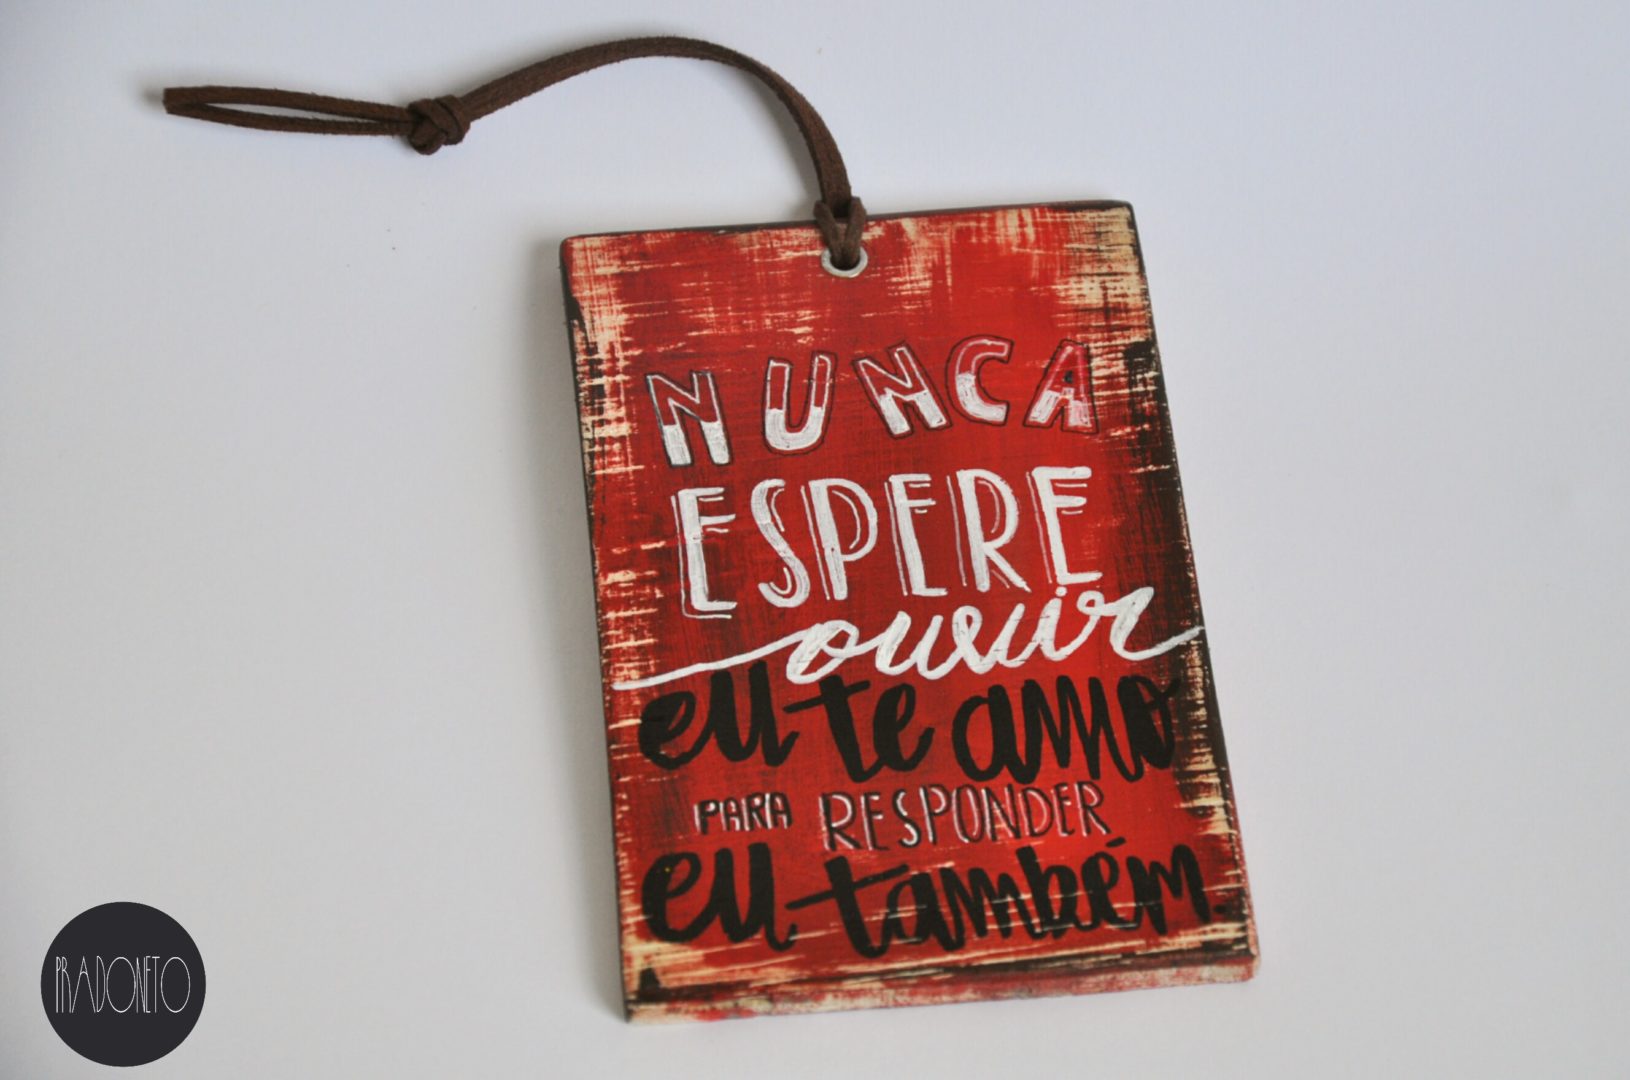 NUNCA
ESPERE
ouvir
eu te amo
PARA RESPONDER
eu também.
PRADONETO